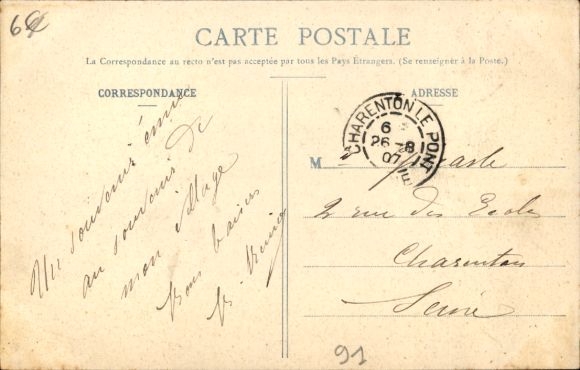 6
CARTE POSTALE
La Correspondance au recto n'est pas acceptée par tous les Pays Étrangers. (Se renseigner à la Poste.)
CORRESPONDANCE
Un souvenir ému
au souvenir de
mon village
bons baisers
ADRESSE
CHARENTON LE PONT
6
26 - 8
07
M
2 rue des Ecoles
Charenton
Seine
91